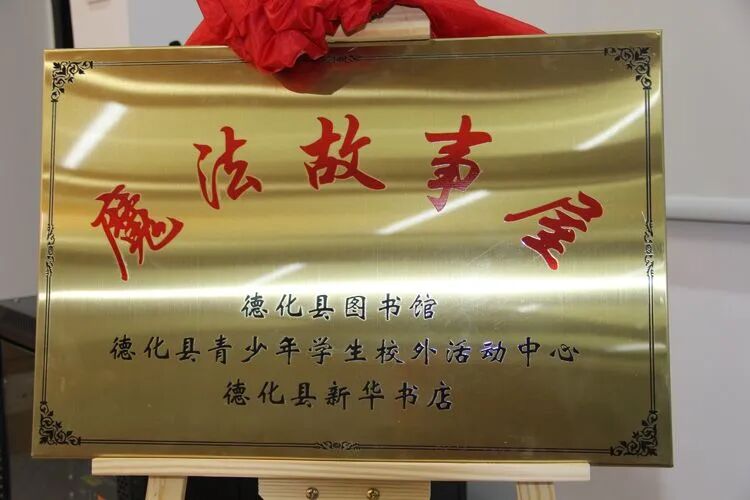 魔法故事屋
德化县图书馆
德化县青少年学生校外活动中心
德化县新华书店